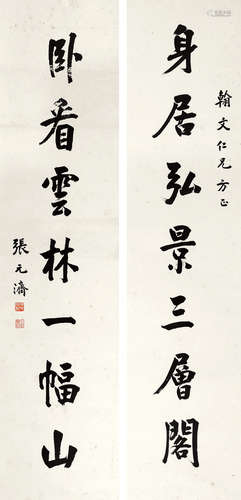 翰文仁兄方正
身居弘景三層閣
卧看雲林一幅山
張元濟